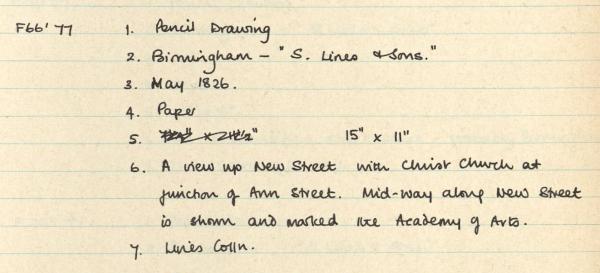 F66'77 1. Pencil Drawing
2. Birmingham - "S. Lines & Sons."
3. May 1826.
4. Paper
5. 15" x 11"
6. A view up New Street with Christ Church at
junction of Ann Street. Mid-way along New Street
is shown and marked the Academy of Arts.
7. Lines Colln.